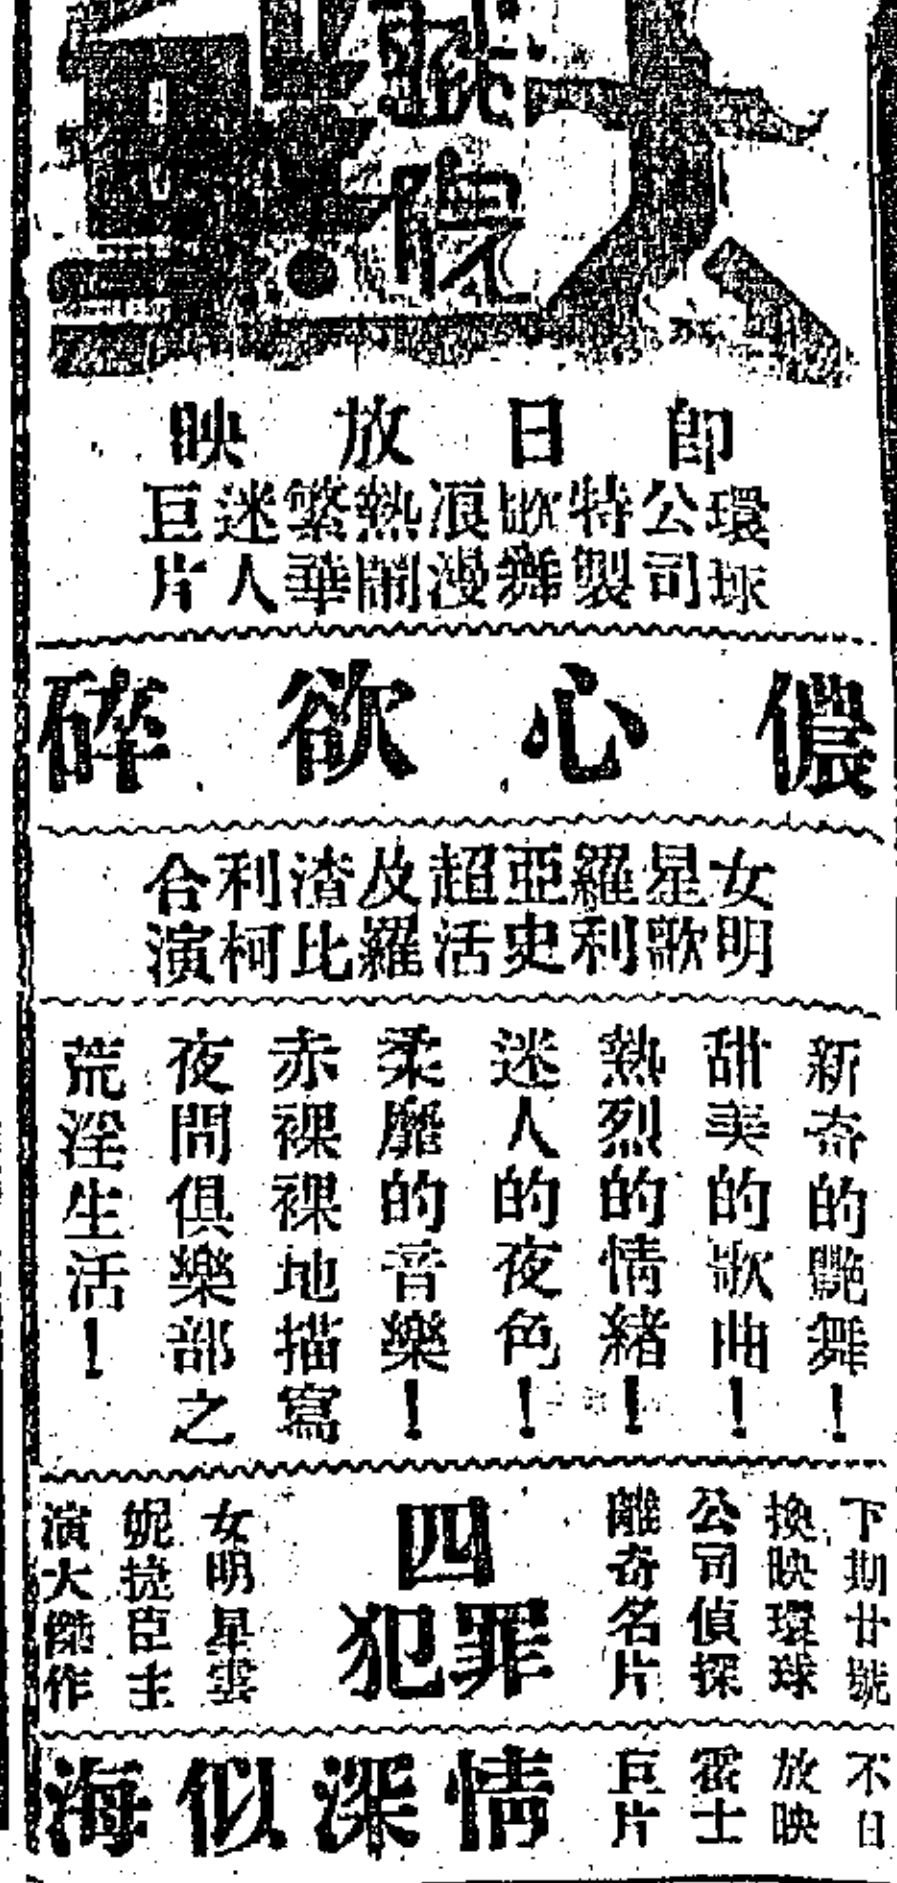 戲
院
即日放映
環球公司特製歌舞浪漫熱鬧繁華迷人巨片
儂心欲碎
女明星歌羅利亞史超活及羅渣比利柯合演
新奇的艷舞！
甜美的歌曲！
熱烈的情緒！
迷人的夜色！
柔靡的音樂！
赤裸裸地描寫
夜間俱樂部之
荒淫生活！
下期廿號
換映環球
公司偵探
離奇名片
四
罪犯
女明星雲
妮捷臣主
演大傑作
不日
放映
霍士
巨片
情深似海